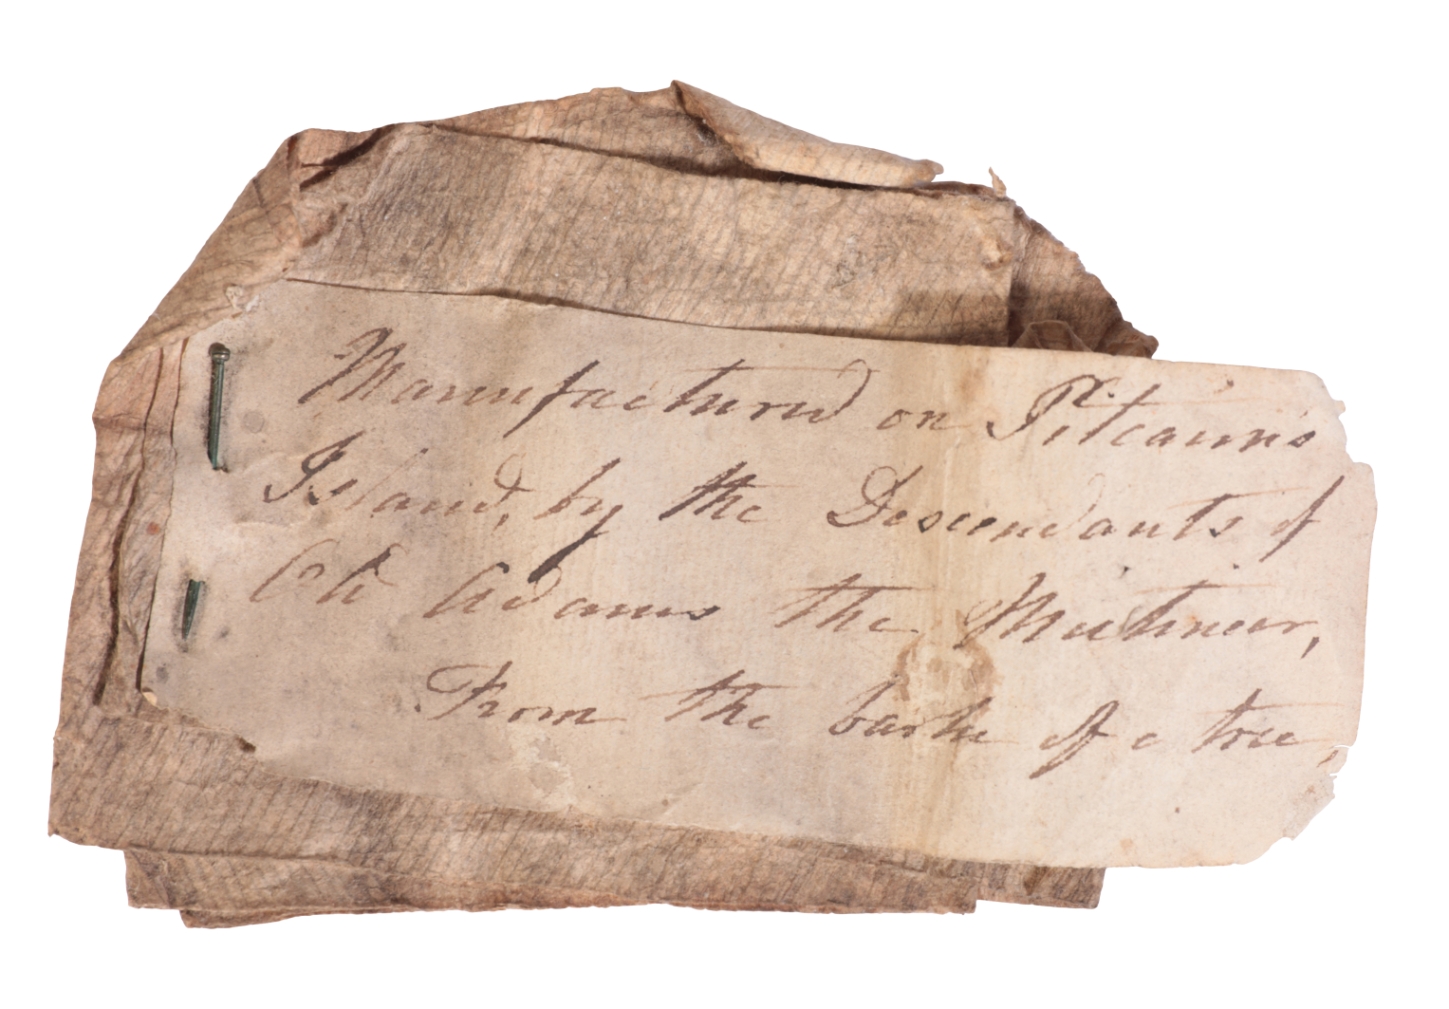 Manufactured on Pitcairn's
Island, by the Descendants of
Old Adams the Mutineer,
From the barke of a tree,